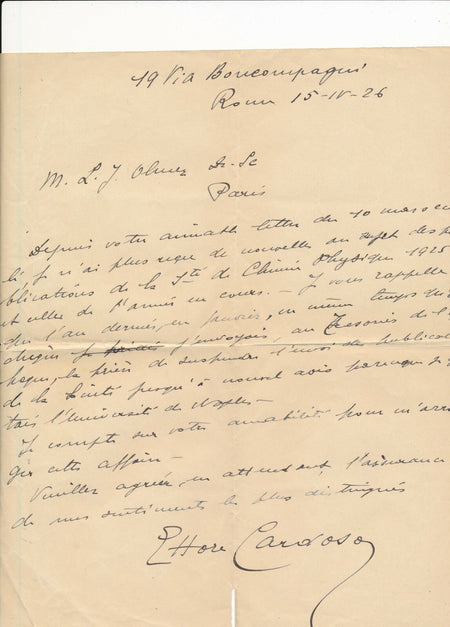 19 Via Boncompagni
Rome 15-IV-26
M. L. J. Olmer Dr. Sc
Paris
Depuis votre aimable lettre du 10 mars
je n'ai plus reçu de nouvelles au sujet des
blications de la Sté de Chimie Physique 1925
et celles de l'année en cours. – Je vous rappelle
que l'an dernier, en janvier, en même temps
chèque j'envoyais, au Trésorier de
la prière de suspendre l'envoi des
de la Société jusqu'à nouvel avis parceque
tais l'Université de Naples –
Je compte sur votre amabilité pour
ger cette affaire –
Veuillez agréer, en attendant, l'assurance
de mes sentiments les plus distingués
Ettore Cardoso